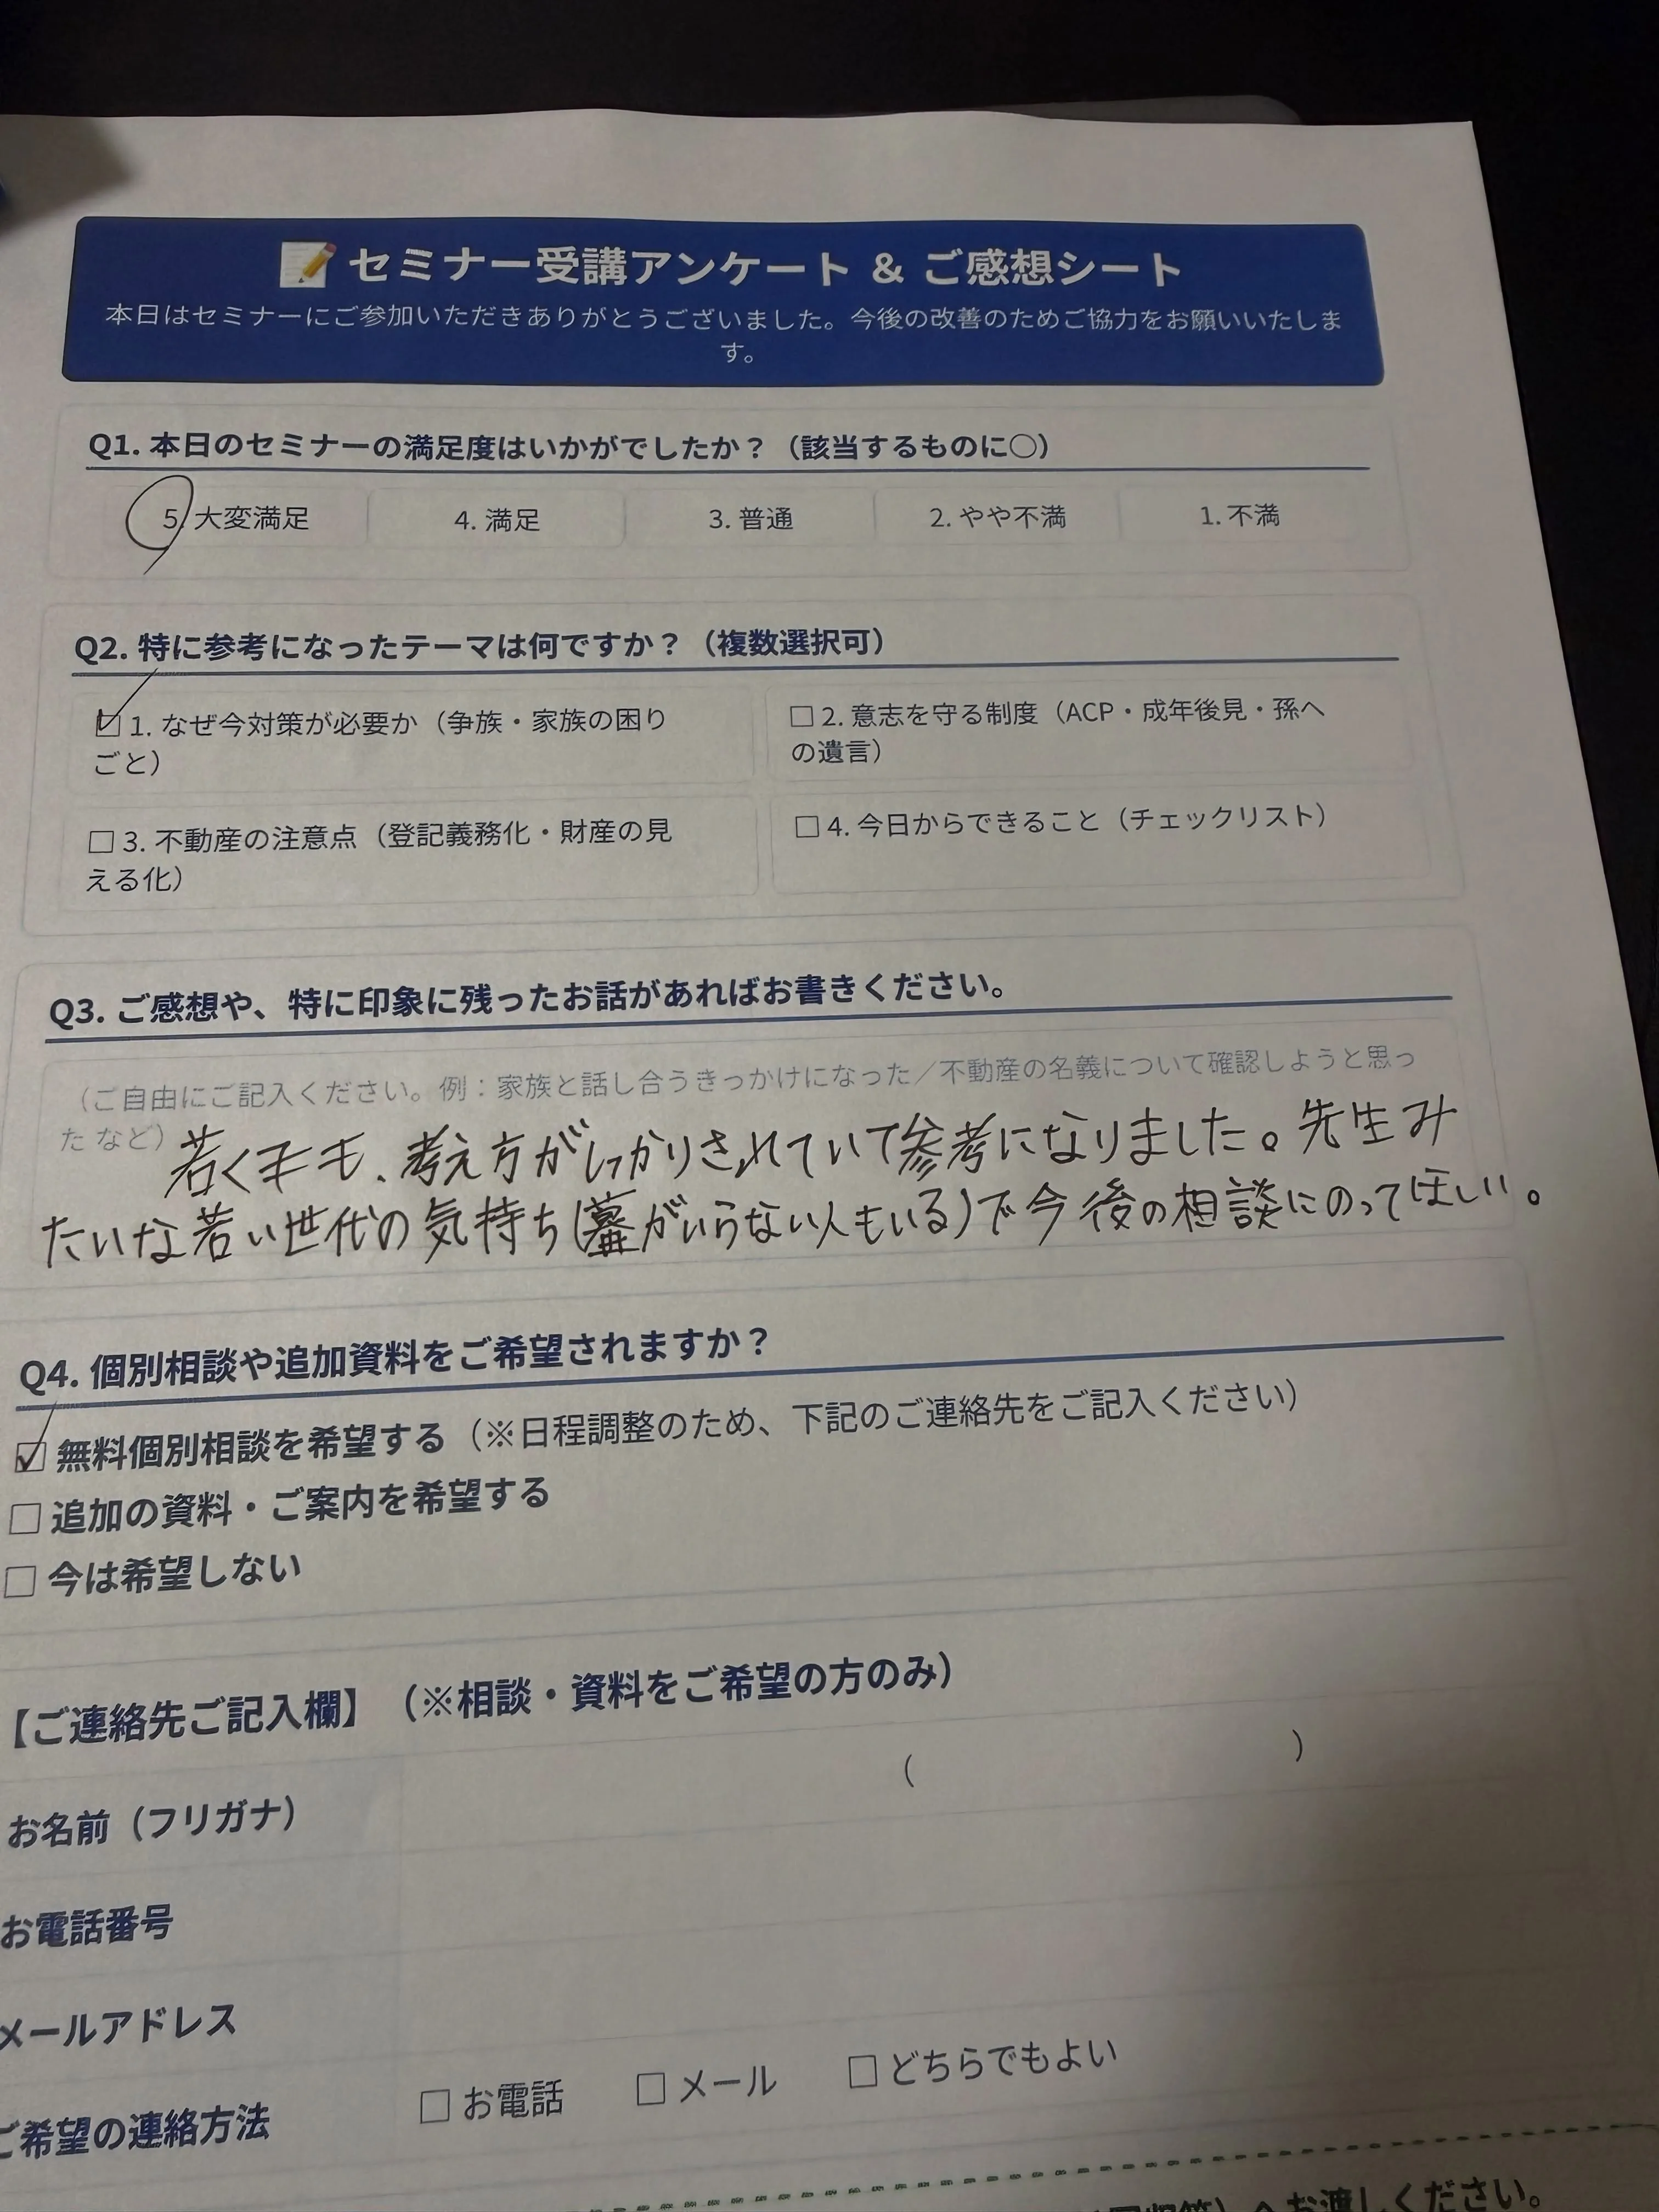 📝 セミナー受講アンケート & ご感想シート
本日はセミナーにご参加いただきありがとうございました。今後の改善のためご協力をお願いいたしま
す。
Q1. 本日のセミナーの満足度はいかがでしたか？（該当するものに〇）
5. 大変満足 4. 満足 3. 普通 2. やや不満 1. 不満
Q2. 特に参考になったテーマは何ですか？（複数選択可）
☑ 1. なぜ今対策が必要か（争族・家族の困り
ごと）
□ 2. 意志を守る制度（ACP・成年後見・孫へ
の遺言）
□ 3. 不動産の注意点（登記義務化・財産の見
える化）
□ 4. 今日からできること（チェックリスト）
Q3. ご感想や、特に印象に残ったお話があればお書きください。
（ご自由にご記入ください。例：家族と話し合うきっかけになった／不動産の名義について確認しようと思っ
た など）
若くても、考え方がしっかりされていて参考になりました。先生み
たいな若い世代の気持ち(墓がいらない人もいる)で今後の相談にのってほしい。
Q4. 個別相談や追加資料をご希望されますか？
☑ 無料個別相談を希望する（※日程調整のため、下記のご連絡先をご記入ください）
□ 追加の資料・ご案内を希望する
□ 今は希望しない
【ご連絡先ご記入欄】（※相談・資料をご希望の方のみ）
お名前（フリガナ） （ ）
お電話番号
メールアドレス
ご希望の連絡方法 □ お電話 □ メール □ どちらでもよい
へお渡しください。